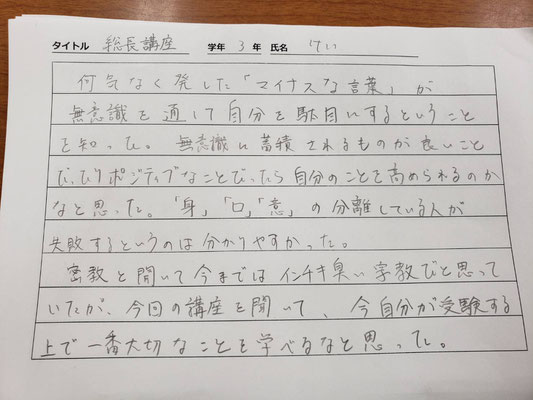 タイトル 総長講座 学年 3 年 氏名 けい
何気なく発した「マイナスな言葉」が
無意識を通して自分を駄目にするということ
を知った。無意識に蓄積されるものが良いこと
だったりポジティブなことだったら自分のことを高められるのか
なと思った。「身」「口」「意」の分離している人が
失敗するというのは分かりやすかった。
密教と聞いて今まではインチキ臭い宗教だと思って
いたが、今回の講座を聞いて、今自分が受験する
上で一番大切なことを学べるなと思った。